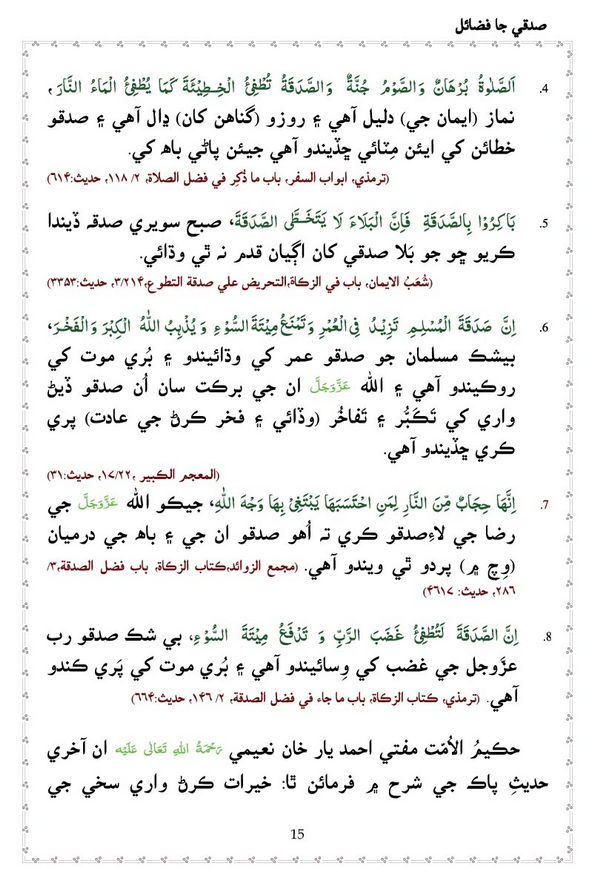 صدقي جا فضائل
4. اَلصَّلٰوةُ بُرْهَانٌ وَالصَّوْمُ جُنَّةٌ وَالصَّدَقَةُ تُطْفِئُ الْخِطِيْئَةَ كَمَا يُطْفِئُ الْمَاءُ النَّارَ،
نماز (ايمان جي) دليل آهي ۽ روزو (گناهن کان) ڍال آهي ۽ صدقو
خطائن کي ايئن مِٽائي ڇڏيندو آهي جيئن پاڻي باه کي.
(ترمذي، ابواب السفر، باب ما ذُکِر في فضل الصلاة، ٢/ ١١٨، حديث:٦١۴)
5. بَاكِرُوْا بِالصَّدَقَةِ فَاِنَّ الْبَلَاءَ لَا يَتَخَطَّى الصَّدَقَةَ، صبح سويري صدقہ ڏيندا
ڪريو ڇو جو بَلا صدقي کان اڳيان قدم نہ ٿي وڌائي.
(شُعَبُ الايمان، باب في الزکاة،التحريض علي صدقة التطوع،٣/٢١۴، حديث:٣٣٥٣)
6. اِنَّ صَدَقَةَ الْمُسْلِمِ تَزِيْدُ فِي الْعُمْرِ وَتَمْنَعُ مِيْتَةَ السُّوْءِ وَيُذْهِبُ اللهُ الْكِبْرَ وَالْفَخْرَ،
بيشڪ مسلمان جو صدقو عمر کي وڌائيندو ۽ بُري موت کي
روڪيندو آهي ۽ الله عَزَّوَجَلَّ ان جي برڪت سان اُن صدقو ڏيڻ
واري کي تَڪَبُّر ۽ تَفاخُر (وڏائي ۽ فخر ڪرڻ جي عادت) پري
ڪري ڇڏيندو آهي.
(المعجم الکبير ،١٧/٢٢، حديث:٣١)
7. اِنَّهَا حِجَابٌ مِّنَ النَّارِ لِمَنِ احْتَسَبَهَا يَبْتَغِيْ بِهَا وَجْهَ اللهِ، جيڪو الله عَزَّوَجَلَّ جي
رضا جي لاءِصدقو ڪري تہ اُهو صدقو ان جي ۽ باه جي درميان
(وِچ ۾) پردو ٿي ويندو آهي. (مجمع الزوائد،کتاب الزکاة، باب فضل الصدقة،٣/
٢٨٦، حديث: ۴٦١٧)
8. اِنَّ الصَّدَقَةَ لَتُطْفِئُ غَضَبَ الرَّبِّ وَ تَدْفَعُ مِيْتَةَ السُّوْءِ، بي شڪ صدقو رب
عزّوجل جي غضب کي وِسائيندو آهي ۽ بُري موت کي پَري ڪندو
آهي. (ترمذي، کتاب الزکاة، باب ما جاء في فضل الصدقة، ٢/ ١۴٦، حديث:٦٦۴)
حڪيمُ الاُمّت مفتي احمد يار خان نعيمي رَحْمَةُ اللهِ تَعَالٰى عَلَيْه ان آخري
حديثِ پاڪ جي شرح ۾ فرمائن ٿا: خيرات ڪرڻ واري سخي جي
15